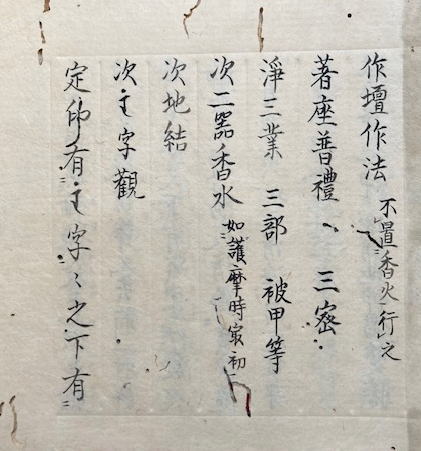 作壇作法 不置香火行之
著座普禮〻 三密
淨三業 三部 被甲等
次二器香水 如護摩時最初
次地結
次𑖀字觀
定印有𑖀字〻之下有